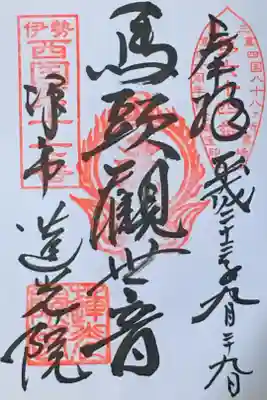 三重四国八十八ヶ所
奉拝
平成二十三年九月二十九日
馬頭觀世音
伊勢
西国
津市 蓮光院